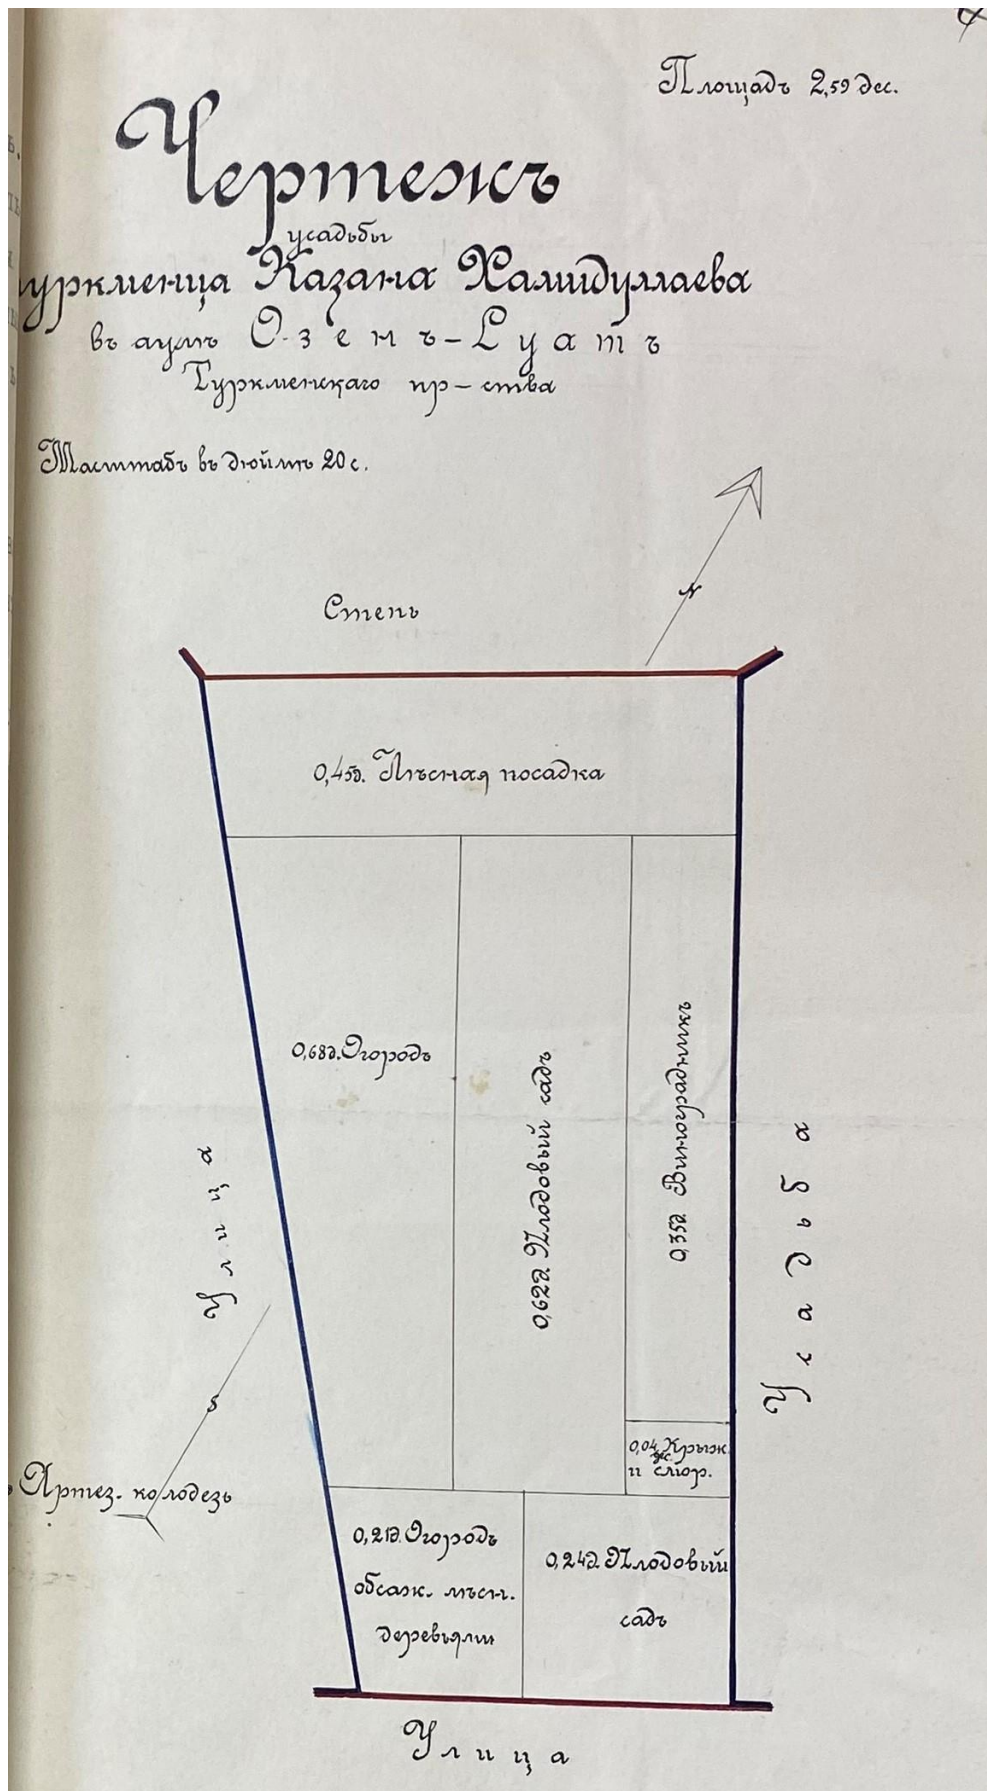 Площадь 2,59 дес.
Чертежъ
усадьбы
уркменца Казана Халидуллаева
въ аулѣ Озенъ-Суатъ
Туркменскаго пр-ства
Масштабъ въ дюймѣ 20 с.
N
Степь
0,45д. Лѣсная посадка
0,68д. Огородъ
0,62д. Плодовый садъ
0,35д. Виноградникъ
Улица
Усадьба
S
Артез. колодезь
0,04 дес. Крыж.
и смор.
0,21д. Огородъ
обсаж. лѣсн.
деревьями
0,24д. Плодовый
садъ
Улица